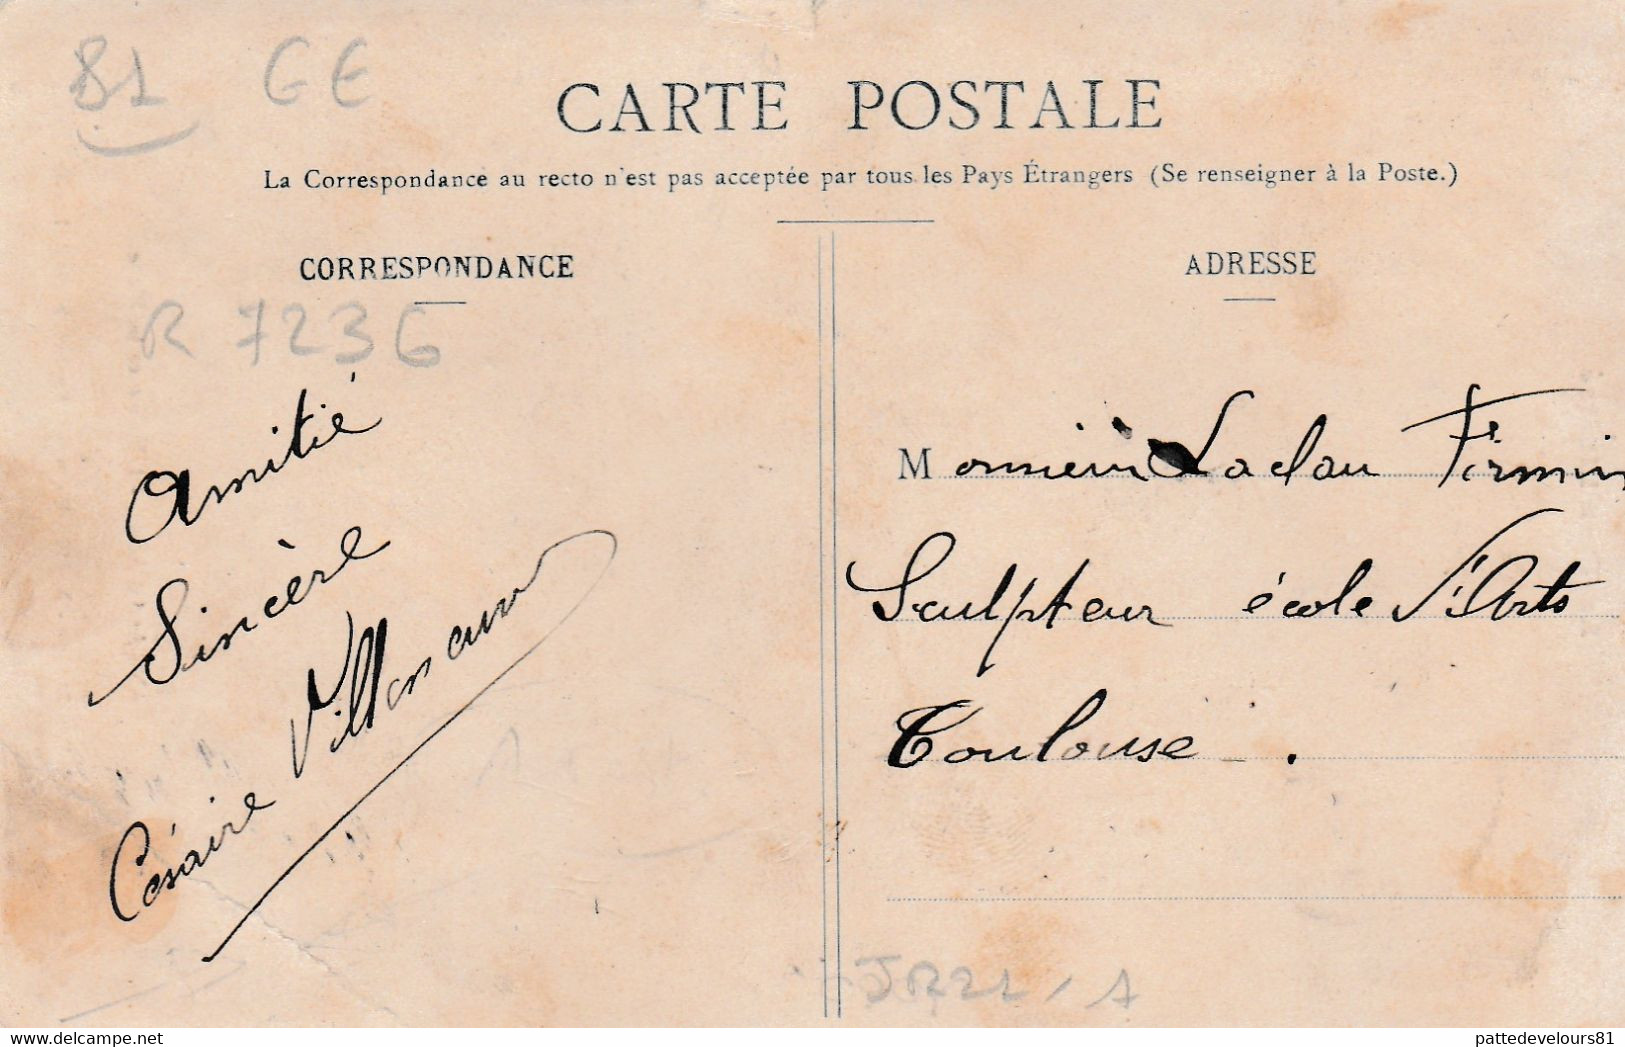 81 GE
CARTE POSTALE
La Correspondance au recto n'est pas acceptée par tous les Pays Étrangers (Se renseigner à la Poste.)
CORRESPONDANCE
R 7236
Amitié
Sincère
Césaire
ADRESSE
Monsieur Laclau Firmin
Sculpteur école d'Arts
Toulouse.
JR21
pattedevelours81